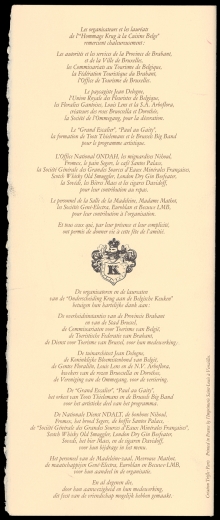 Les organisateurs et les lauréats
de l'"Hommage Krug à la Cuisine Belge"
remercient chaleureusement :
Les autorités et les services de la Province de Brabant,
et de la Ville de Bruxelles,
les Commissariats au Tourisme de Belgique,
la Fédération Touristique du Brabant,
l'Office de Tourisme de Bruxelles.
Le paysagiste Jean Delogne,
l'Union Royale des Fleuristes de Belgique,
les Floralies Gantoises, Louis Lens et la S.A. Arboflora,
créateurs des roses Bruxella et Dorothée,
la Société de l'Ommegang, pour la décoration.
Le "Grand Escalier", "Paul au Gaity",
la formation de Toots Thielemans et le Brussels Big Band
pour le programme artistique.
L'Office National ONDAH, les mignardises Nihoul,
Fromco, le pain Segers, le café Santos Palace,
la Société Générale des Grandes Sources d'Eaux Minérales Françaises,
Scotch Whisky Old Smuggler, London Dry Gin Beefeater,
la Swedi, les Bières Maes et les cigares Davidoff,
pour leur contribution au repas.
Le personnel de la Salle de la Madeleine, Madame Mattot,
les Sociétés Gour-Electra, Euroblan et Besauce LMB,
pour leur contribution à l'organisation.
Et tous ceux qui, par leur présence et leur complicité,
ont permis de donner vie à cette fête de l'amitié.
K
De organisatoren en de laureaten
van de "Onderscheiding Krug aan de Belgische Keuken"
betuigen hun hartelijke dank aan:
De overheidsinstanties van de Provincie Brabant
en van de Stad Brussel,
de Commissariaten voor Toerisme van België,
de Toeristische Federatie van Brabant,
de Dienst voor Toerisme van Brussel, voor hun medewerking.
De tuinarchitect Jean Delogne,
de Koninklijke Bloemistenbond van België,
de Gentse Floraliën, Louis Lens en de N.V. Arboflora,
kwekers van de rozen Bruxella en Dorothée,
de Vereniging van de Ommegang, voor de versiering.
De "Grand Escalier", "Paul au Gaity",
het orkest van Toots Thielemans en de Brussels Big Band
voor het artistieke deel van het programma.
De Nationale Dienst NDALT, de bonbons Nihoul,
Fromco, het brood Segers, de koffie Santos Palace,
de "Société Générale des Grandes Sources d'Eaux Minérales Françaises",
Scotch Whisky Old Smuggler, London Dry Gin Beefeater,
Swedi, het bier Maes, en de sigaren Davidoff,
voor hun bijdrage in het menu.
Het personeel van de Madeleine-zaal, Mevrouw Mattot,
de maatschappijen Gour-Electra, Euroblan en Besauce LMB,
voor hun aandeel in de organisatie.
En al degenen die,
door hun aanwezigheid en hun medewerking,
dit feest van de vriendschap mogelijk hebben gemaakt.